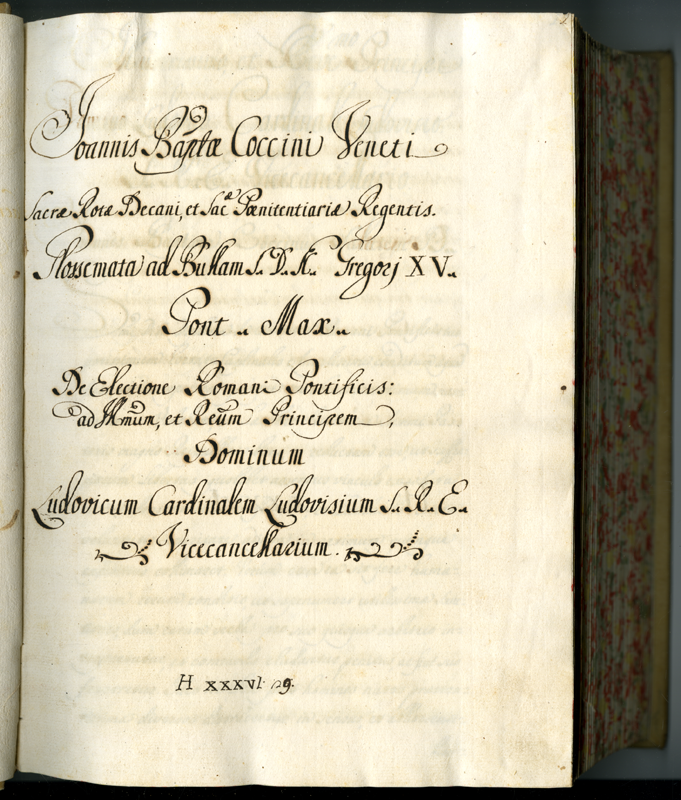 Joannis Baptæ Coccini Veneti
Sacræ Rotæ Decani, et Sac.æ Pœnitentiariæ Regentis.
Glossemata ad Bullam S. D. N. Gregorj XV.
Pont. Max.
De Electione Romani Pontificis:
ad Illmum, et Reum Principem,
Dominum
Ludovicum Cardinalem Ludovisium S. R. E.
Vicecancellarium.
H XXXVI 29.